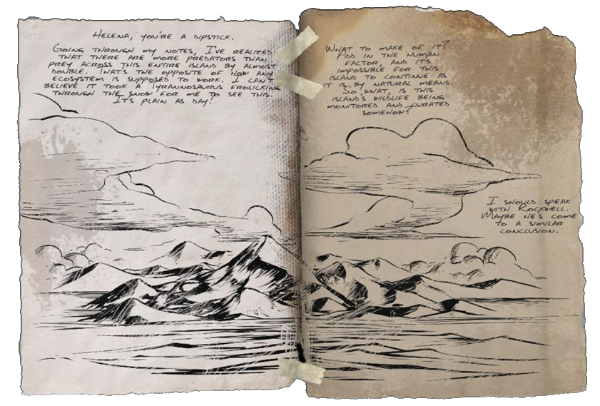 HELENA, YOU'RE A DIPSTICK.
GOING THROUGH MY NOTES, I'VE REALIZED
THAT THERE ARE MORE PREDATORS THAN
PREY ACROSS THIS ENTIRE ISLAND BY ALMOST
DOUBLE. THAT'S THE OPPOSITE OF HOW ANY
ECOSYSTEM IS SUPPOSED TO WORK. I CAN'T
BELIEVE IT TOOK A TYRANNOSAURUS FROLICKING
THROUGH THE SNOW FOR ME TO SEE THIS.
IT'S PLAIN AS DAY!
WHAT TO MAKE OF IT?
ADD IN THE HUMAN
FACTOR, AND IT'S
IMPOSSIBLE FOR THIS
ISLAND TO CONTINUE AS
IT IS BY NATURAL MEANS.
SO WHAT, IS THIS
ISLAND'S WILDLIFE BEING
MONITORED AND CURATED
SOMEHOW?
I SHOULD SPEAK
WITH ROCKWELL.
MAYBE HE'S COME
TO A SIMILAR
CONCLUSION.